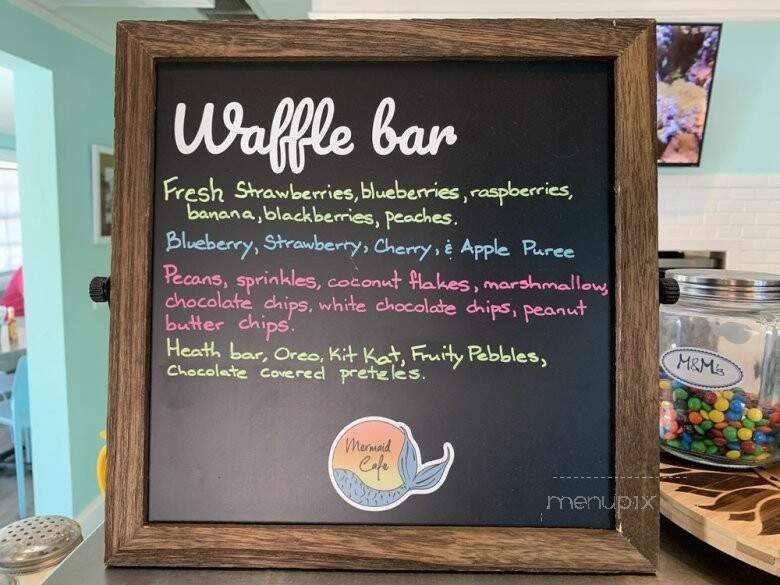 Waffle bar
Fresh Strawberries, blueberries, raspberries,
banana, blackberries, peaches.
Blueberry, Strawberry, Cherry, & Apple Puree
Pecans, sprinkles, coconut flakes, marshmallow,
chocolate chips, white chocolate chips, peanut
butter chips.
Heath bar, Oreo, Kit Kat, Fruity Pebbles,
Chocolate covered pretzles.
Mermaid
Cafe
M&M's
menupix